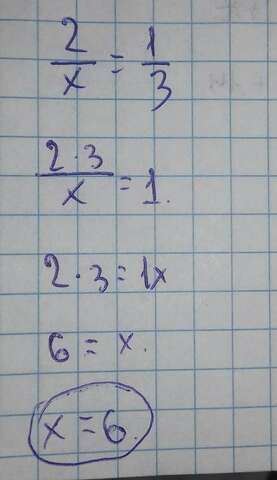 2/x = 1/3
2·3/x = 1.
2·3 = 1x
6 = x.
x = 6.